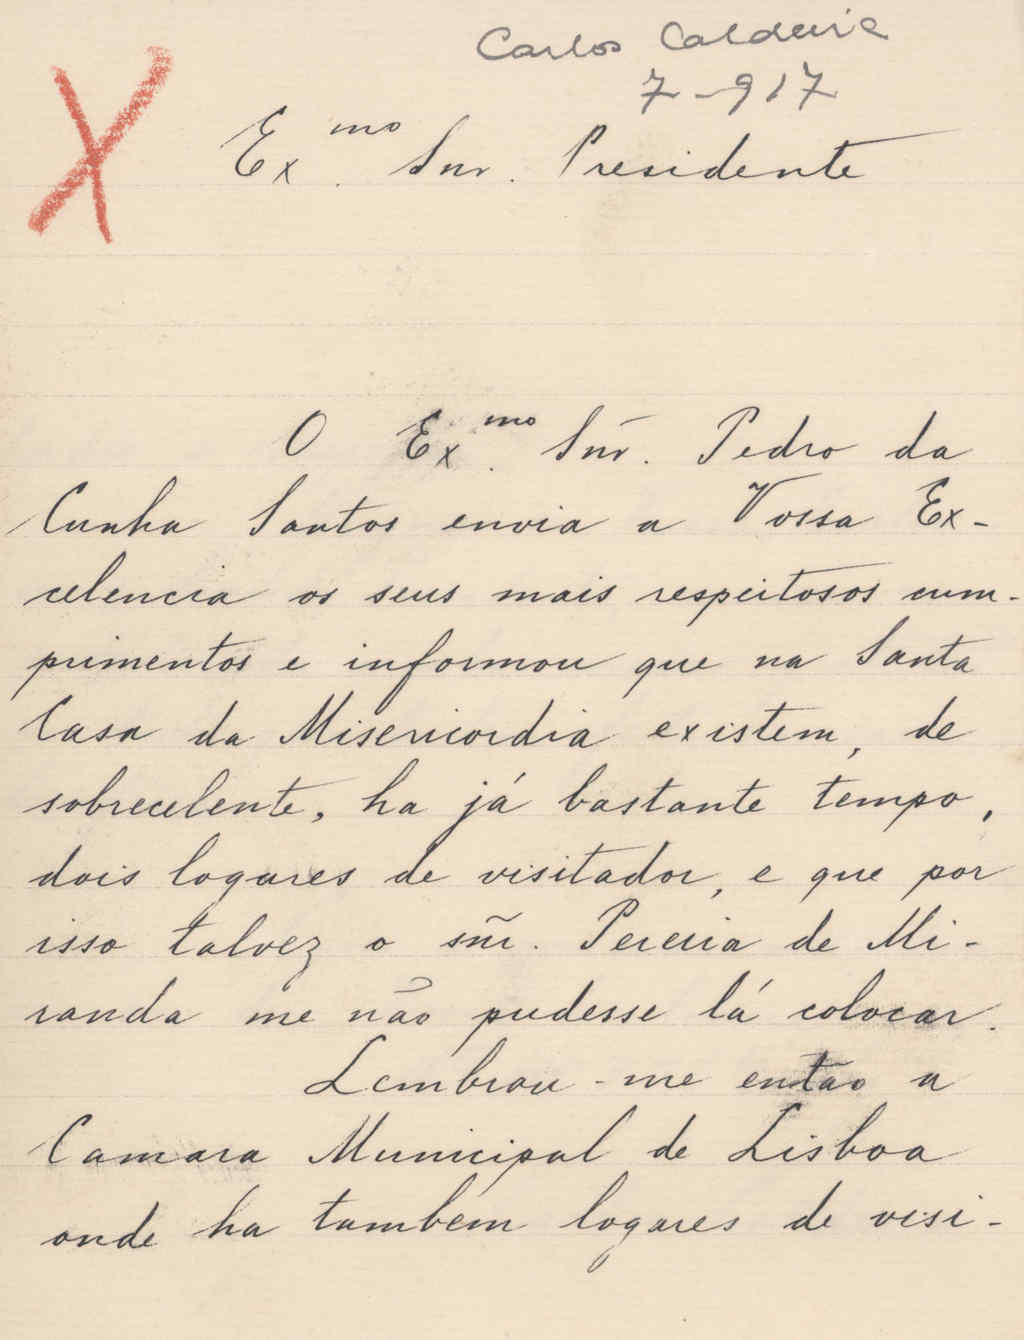 Carlos Caldeira
7-917
X
Exmo. Snr. Presidente
O Exmo. Snr. Pedro da
Cunha Santos envia a Vossa Ex-
celencia os seus mais respeitosos cum-
primentos e informou que na Santa
Casa da Misericordia existem, de
sobrecelente, ha já bastante tempo,
dois logares de visitador, e que por
isso talvez o sñr. Pereira de Mi-
randa me não pudesse lá colocar.
Lembrou-me então a
Camara Municipal de Lisboa
onde ha tambem logares de visi-